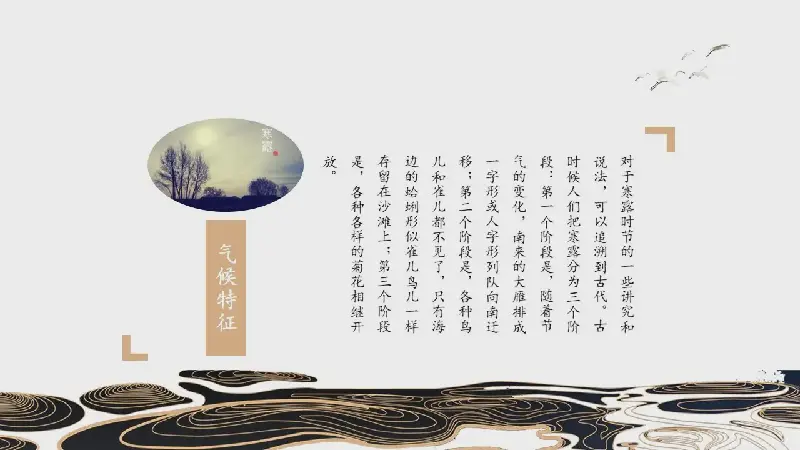 对于寒露时节的一些讲究和
说法，可以追溯到古代。古
时候人们把寒露分为三个阶
段：第一个阶段是，随着节
气的变化，南来的大雁排成
一字形或人字形列队向南迁
移；第二个阶段是，各种鸟
儿和雀儿都不见了，只有海
边的蛤蜊形似雀儿鸟儿一样
存留在沙滩上；第三个阶段
是，各种各样的菊花相继开
放。
寒露
气候特征